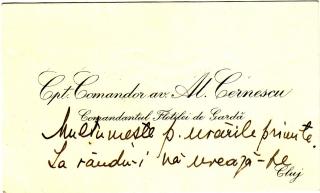 Cpt. Comandor av. Al. Cernescu
Comandantul Flotilei de Gardă
Mulțumește p. urările primite.
La rându-i vă urează-
Cluj